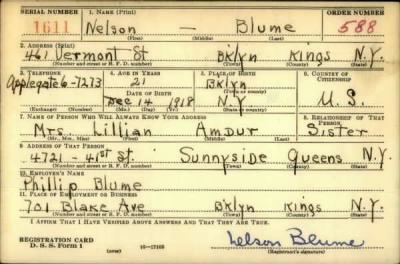 SERIAL NUMBER 1. NAME (Print) ORDER NUMBER
1611 Nelson — Blume 588
(First) (Middle) (Last)
2. ADDRESS (Print)
461 Vermont St Bklyn Kings N.Y.
(Number and street or R. F. D. number) (Town) (County) (State)
3. TELEPHONE 4. AGE IN YEARS 5. PLACE OF BIRTH 6. COUNTRY OF CITIZENSHIP
Applegate 6-7273 21 Bklyn
DATE OF BIRTH
Dec 14 1918 N.Y U.S.
(Exchange) (Number) (Mo.) (Day) (Yr.) (State or country)
7. NAME OF PERSON WHO WILL ALWAYS KNOW YOUR ADDRESS 8. RELATIONSHIP OF THAT PERSON
Mrs. Lillian Amdur Sister
(Mr., Mrs., Miss) (First) (Middle) (Last)
9. ADDRESS OF THAT PERSON
4721 - 41st St. Sunnyside Queens N.Y.
(Number and street or R. F. D. number) (Town) (County) (State)
10. EMPLOYER'S NAME
Phillip Blume
11. PLACE OF EMPLOYMENT OR BUSINESS
701 Blake Ave Bklyn Kings N.Y.
(Number and street or R. F. D. number) (Town) (County) (State)
I AFFIRM THAT I HAVE VERIFIED ABOVE ANSWERS AND THAT THEY ARE TRUE.
REGISTRATION CARD
D. S. S. Form 1 (over) 16-17105 Nelson Blume
(Registrant's signature)